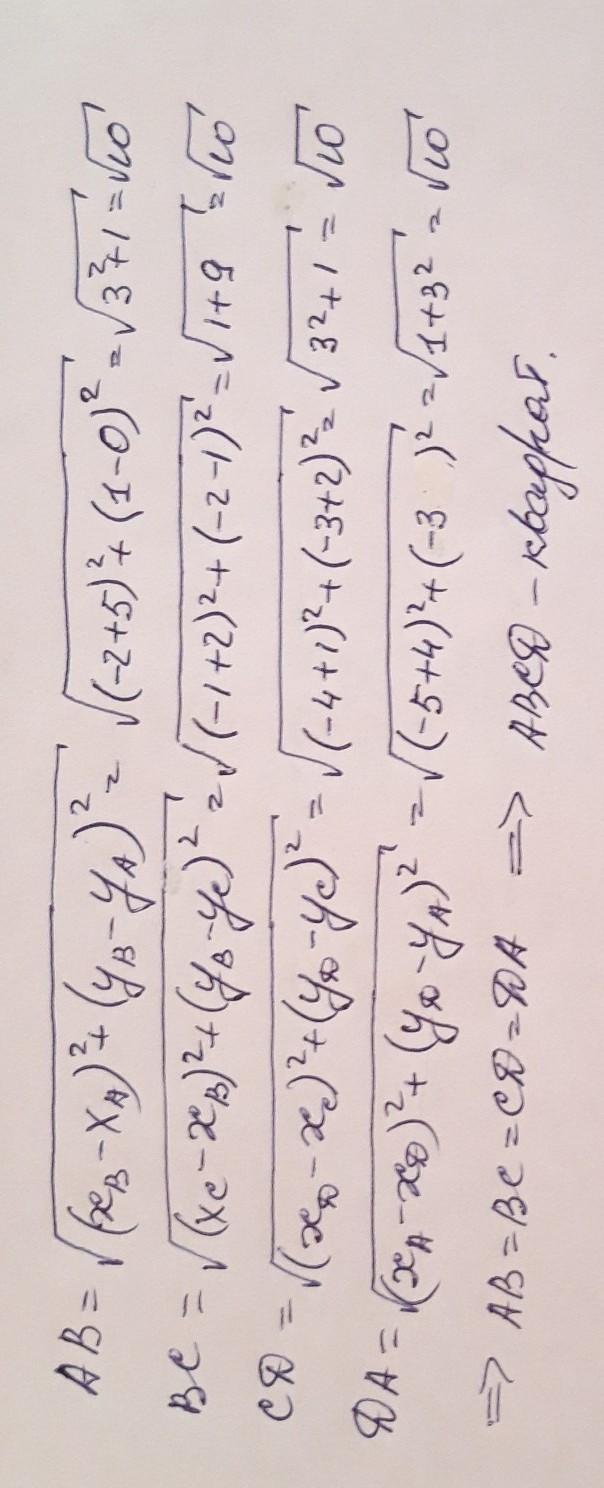 AB = √(x_B - x_A)² + (y_B - y_A)² = √(-2+5)² + (1-0)² = √3²+1 = √10
BC = √(x_C - x_B)² + (y_B - y_C)² = √(-1+2)² + (-2-1)² = √1+9 = √10
CD = √(x_D - x_C)² + (y_D - y_C)² = √(-4+1)² + (-3+2)² = √3²+1 = √10
DA = √(x_A - x_D)² + (y_D - y_A)² = √(-5+4)² + (-3 )² = √1+3² = √10
=> AB = BC = CD = DA => ABCD - квадрат.